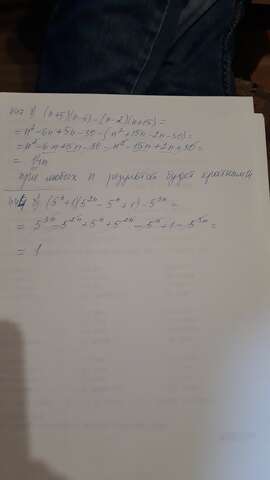 (n+5)(n-6)-(n-2)(n+15)=
=n²-6n+5n-30-(n²+15n-2n-30)=
=n²-6n+5n-30-n²-15n+2n+30=
=
при любых n результат будет
б) (5ⁿ+1)(5²ⁿ-5ⁿ+1)-5³ⁿ=
=5³ⁿ-5²ⁿ+5ⁿ+5²ⁿ-5ⁿ+1-5³ⁿ=
= 1